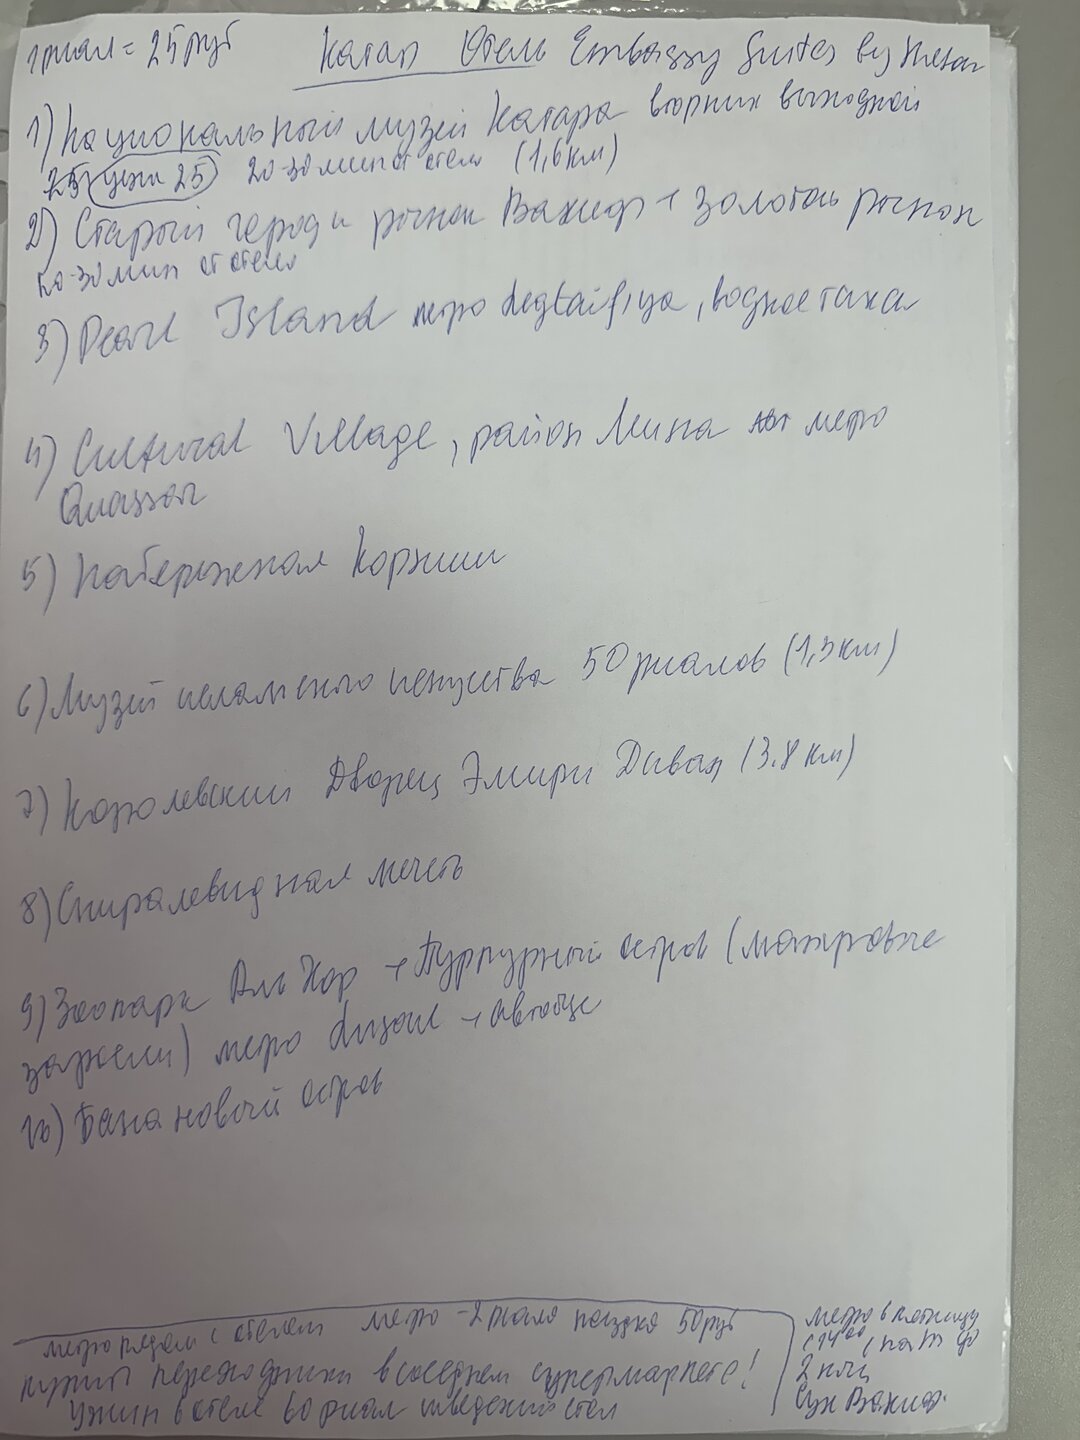 1 риал = 25 руб Катар Отель Embassy Suites by Hilton
1) Национальный музей Катара вторник выходной
25 цена 25 20-30 мин от отеля (1,6 км)
2) Старый город и рынок Вакиф + Золотой рынок
20-30 мин от отеля
3) Pearl Island метро Legtaifiya, водное такси
4) Cultural Village, район Мина метро
5) Набережная Корниш
6) Музей исламского искусства 50 риалов (1,3 км)
7) Королевский Дворец Эмири Диван (3.8 км)
8) Спиралевидная мечеть
9) Зоопарк Аль Хор + Пурпурный остров (мангровые
заросли) метро Lusail + автобус
10) Банановый остров
метро рядом с отелем метро - 2 риала поездка 50 руб
купить переходники в соседнем супермаркете!
Ужин в отеле 60 риал шведский стол
метро в пятницу
с 14⁰⁰
2 ночи
Сук Вакиф